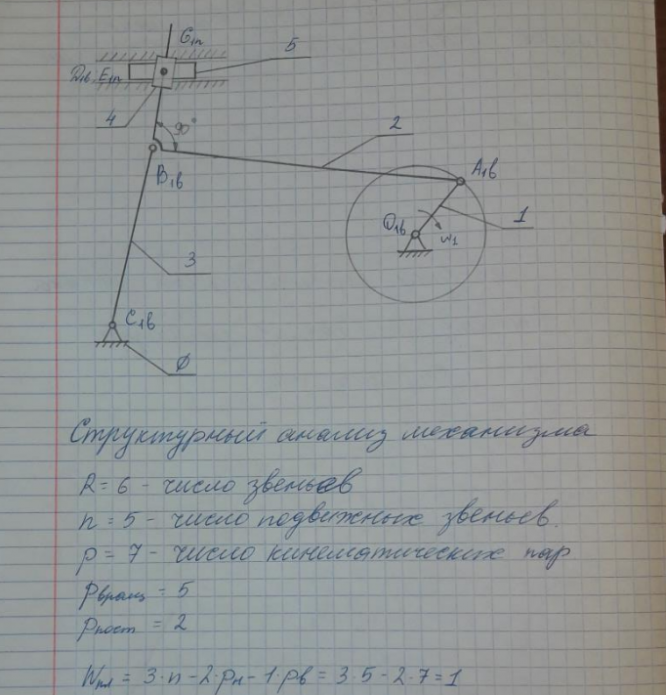 G₁п
5
D₁в E₁п
4
90°
2
B₁в
A₁в
O₁в
1
ω₁
3
C₁в
0
Структурный анализ механизма
R = 6 - число звеньев
n = 5 - число подвижных звеньев.
p = 7 - число кинематических пар
Pвращ = 5
Pпост = 2
Wпл = 3·n-2·pн-1·pв = 3·5-2·7=1